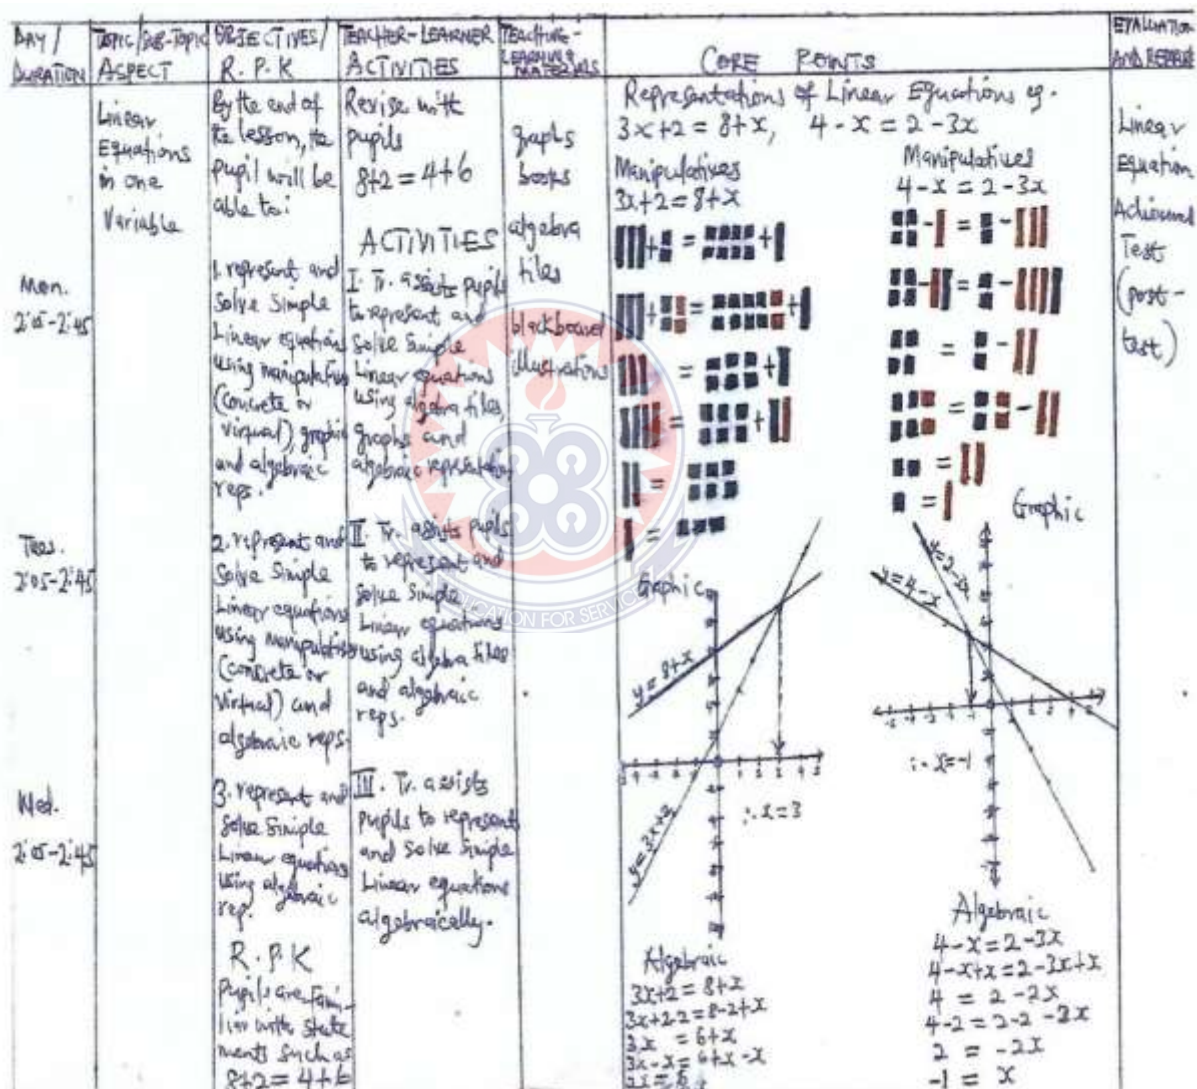 DAY / DURATION
TOPIC/SUB-TOPIC ASPECT
OBJECTIVES/ R.P.K
TEACHER-LEARNER ACTIVITIES
TEACHING-LEARNING MATERIALS
CORE POINTS
EVALUATION AND REMARK
Mon.
2:05-2:45
Tues.
2:05-2:45
Wed.
2:05-2:45
Linear
Equations
in one
Variable
By the end of
the lesson, the
pupil will be
able to:
1. represent and
solve simple
Linear equations
using manipulatives
(concrete or
virtual), graphic
and algebraic
reps.
2. represent and
solve simple
Linear equations
using manipulatives
(concrete or
virtual) and
algebraic reps.
3. represent and
solve simple
Linear equations
using algebraic
rep.
R.P.K
Pupils are fami-
liar with state
ments such as
8+2=4+6
Revise with
pupils
8+2=4+6
ACTIVITIES
I. Tr. assists pupils
to represent and
solve simple
Linear equations
using algebra tiles,
graphs and
algebraic representation
II. Tr. assists pupils
to represent and
solve simple
Linear equations
using algebra tiles
and algebraic
reps.
III. Tr. assists
pupils to represent
and solve simple
Linear equations
algebraically.
graphs
books
algebra
tiles
blackboard
illustrations
Representations of Linear Equations eg.
3x+2=8+x, 4-x=2-3x
Manipulatives
3x+2=8+x
Graphic
y=8+x
y=3x+2
∴x=3
Algebraic
3x+2=8+x
3x+2-2=8-2+x
3x =6+x
3x-x=6+x-x
2x=6
Manipulatives
4-x=2-3x
Graphic
y=2-3x
y=4-x
∴x=-1
Algebraic
4-x=2-3x
4-x+x=2-3x+x
4 = 2-2x
4-2=2-2-2x
2 = -2x
-1 = x
Linear
Equation
Test
(post-
test)
EDUCATION FOR SERVICE